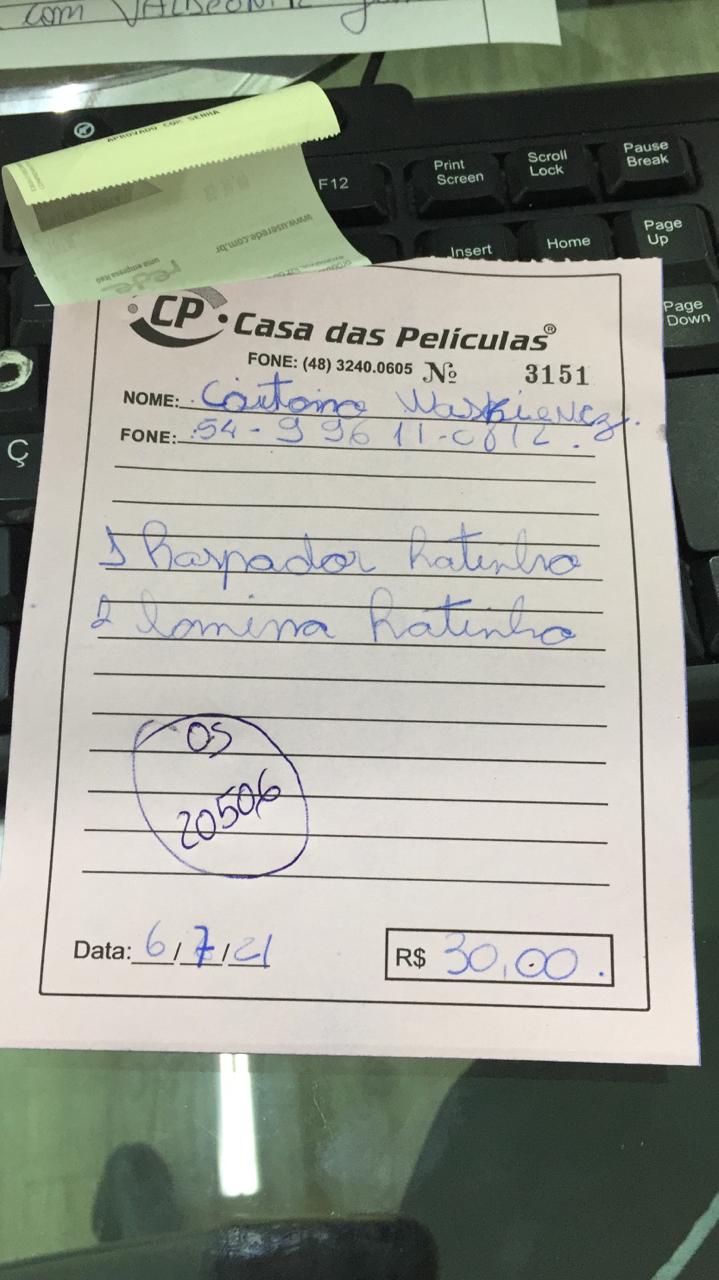 com
APROVADO COM SENHA
www.userede.com.br
rede
uma empresa Itaú
F12
Print Screen
Scroll Lock
Pause Break
Insert
Home
Page Up
Page Down
Ç
CP Casa das Películas®
FONE: (48) 3240.0605 Nº 3151
NOME:
FONE: 54-99611-0612.
1 Raspador Ratinho
2 lamina Ratinho
OS
20506
Data: 6/7/21
R$ 30,00.